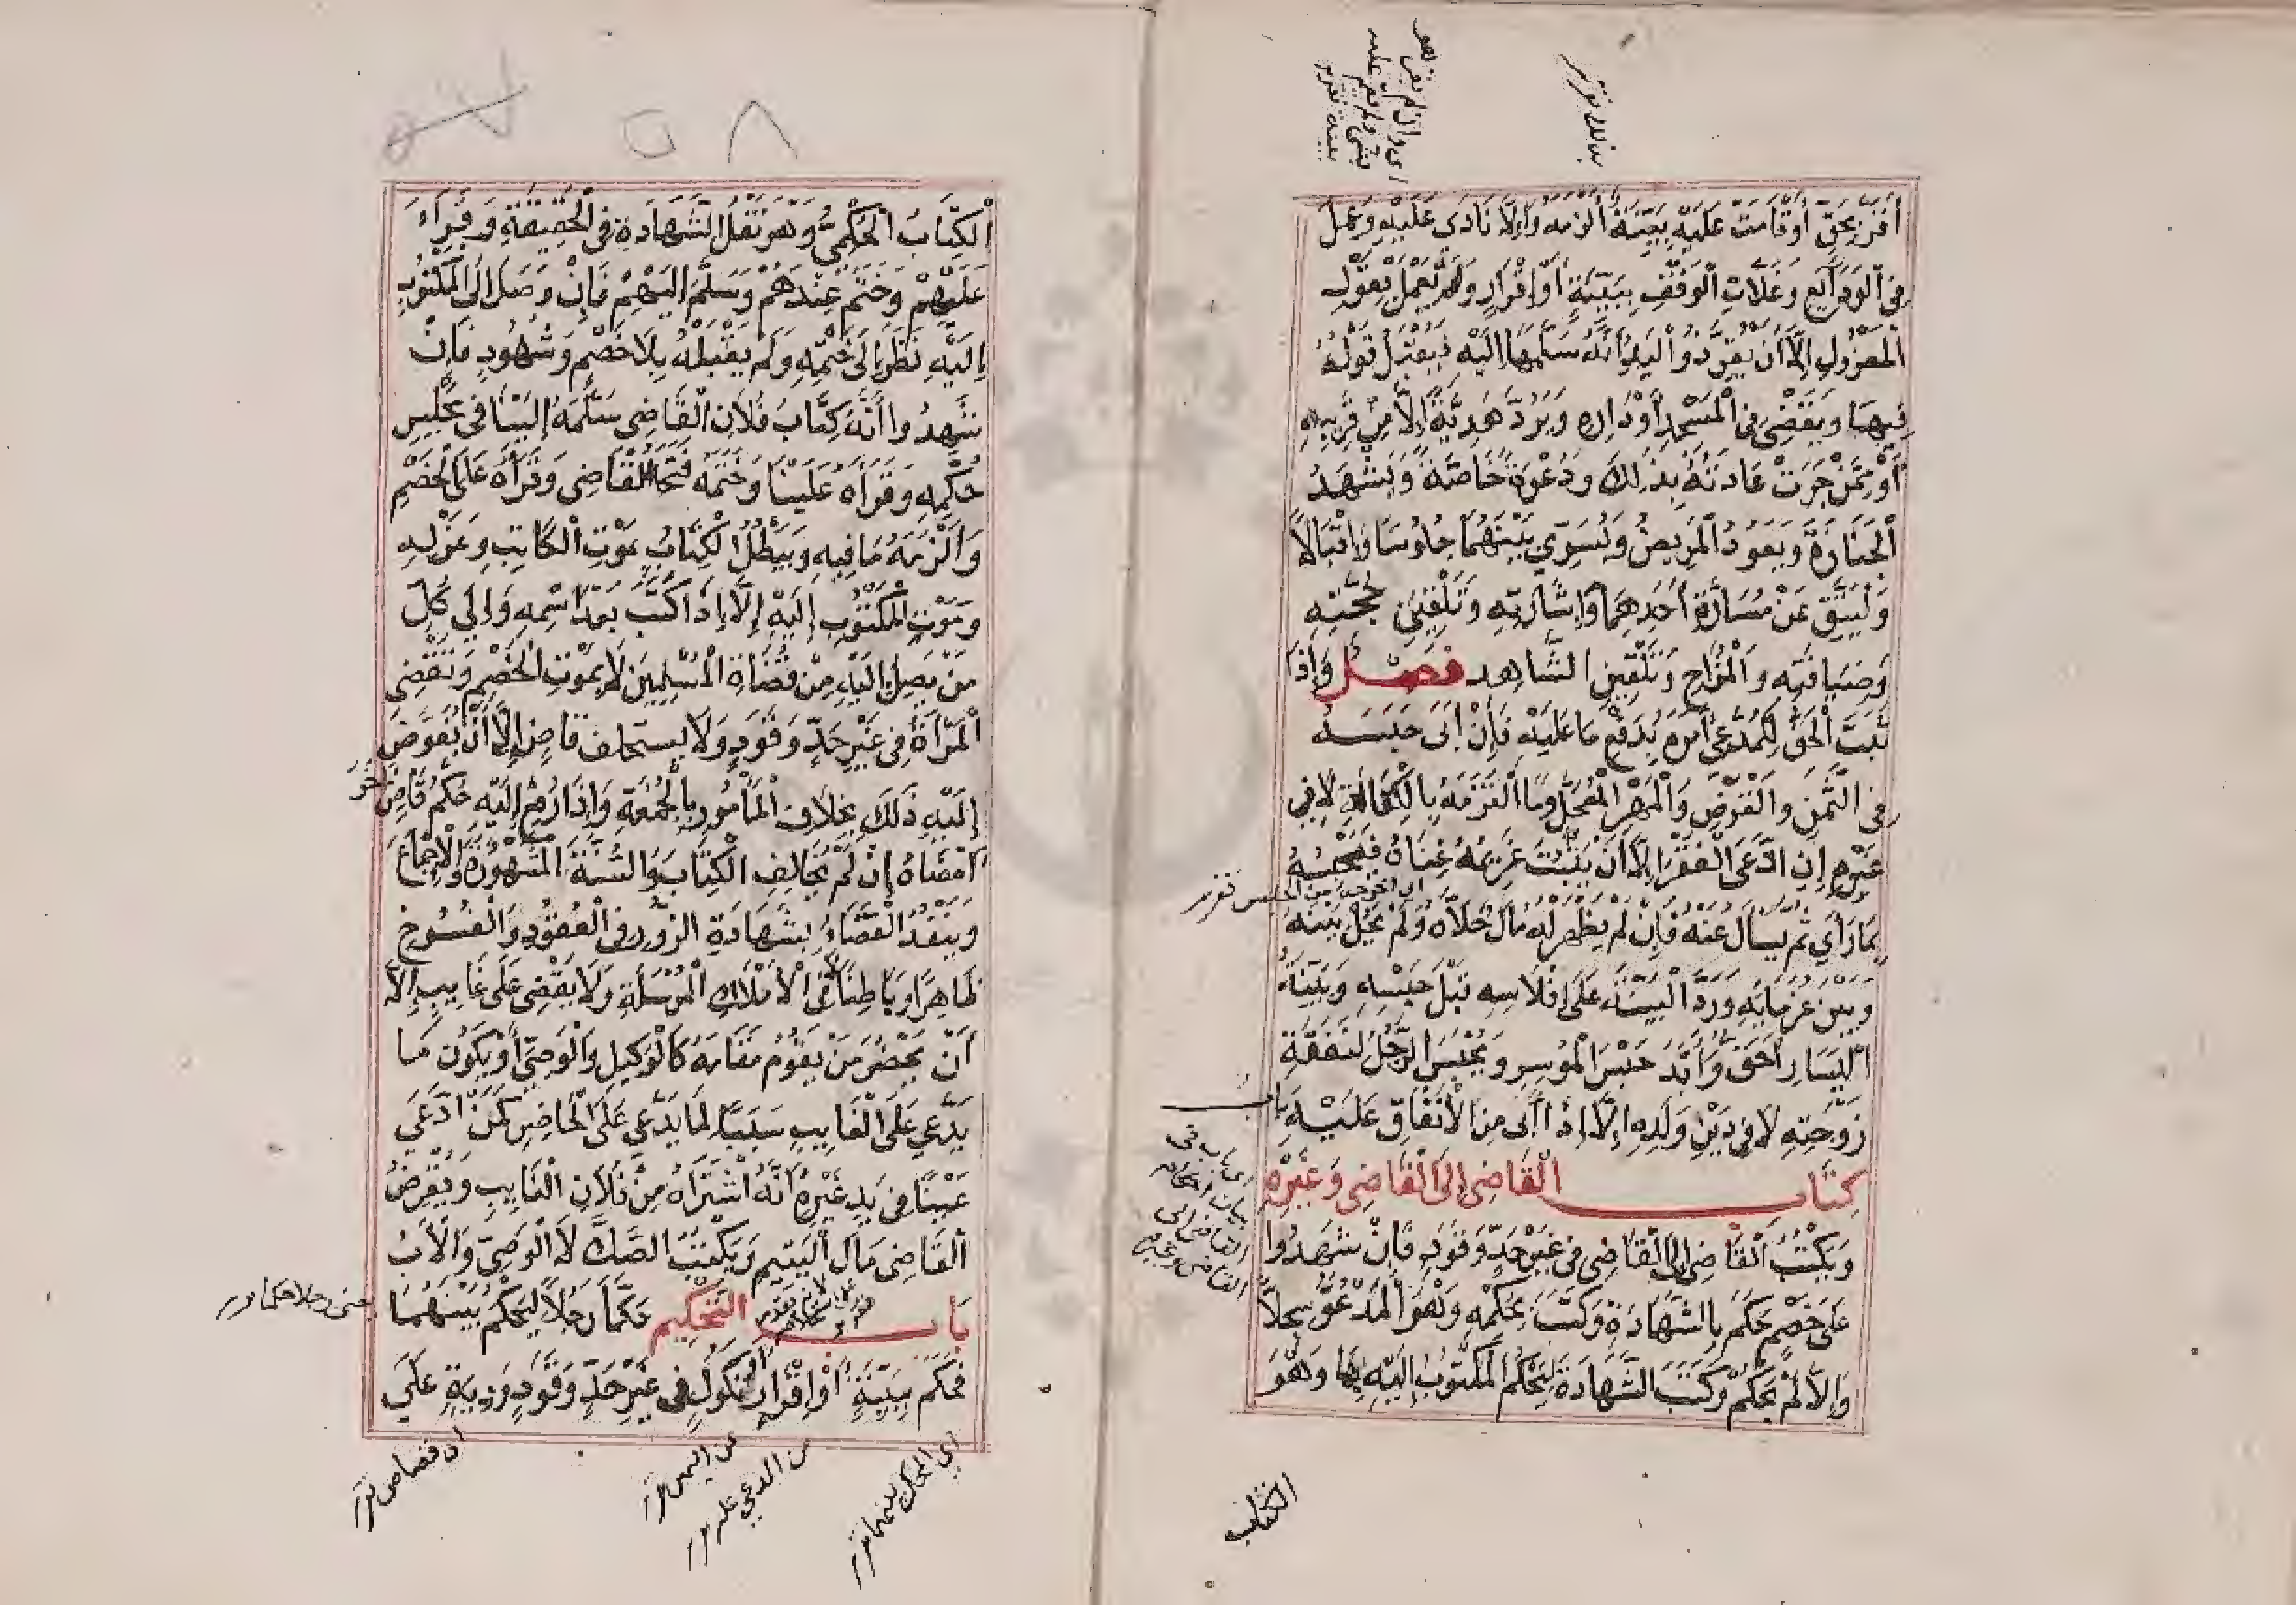 اي وان لم يقر هو
بشئ ولم يقم عليه
بينة تقرير
بذلك تقرير
أقر بحق أو قامت عليه بينة ألزمه وإلا نادى عليه وعمل
في الودايع وغلات الوقف ببينة أو إقرار ولم يعمل بقول
المعزول إلا أن يقر ذو اليد أنه سلمها إليه فيقبل قوله
فيها ويقضي في المسجد أو داره ويرد هدية إلا من قريبه
أو ممن جرت عادته بذلك ودعوة خاصة ويشهد
الجنازة ويعود المريض وليسوي بينهما جلوسا وإقبالا
وليتق عن مسارة أحدهما وإشارته وتلقين حجته
وضيافته والمزاح وتلقين الشاهد فصل وإذا
ثبت الحق للمدعي أمره بدفع ما عليه فإن أبى حبسه
في الثمن والقرض والمهر المعجل وما التزمه بالكفالة لا في
غيره إن ادعى الفقر إلا أن يثبت غريمه غناه فيحبسه
اي اخرجه من الحبس تقرير
بما رأى ثم يسأل عنه فإن لم يظهر له مال خلاه ولم يحل بينه
وبين غرمايه ورد البينة على إفلاسه قبل حبسه وبينة
اليسار أحق وأبد حبس الموسر ويحبس الرجل لنفقة
زوجته لا في دين ولده إلا إذا أبى من الأنفاق عليه باب
كتاب القاضي إلى القاضي وغيره
اي باب في
بيان احكام
القاضي الى
القاضي وغيره
ويكتب القاضي إلى القاضي في غير حد وقود فإن شهدوا
على خصم حكم بالشهادة وكتب بحكمه وهو المدعو سجلا
وإلا لم يحكم وكتب الشهادة ليحكم المكتوب إليه بها وهو
الكتاب
٥٨
الكتاب الحكمي وهو نقل الشهادة في الحقيقة وقراء
عليهم وختم عندهم وسلم اليهم فإن وصل إلى المكتوب
إليه نظر إلى ختمه ولم يقبله بلا خصم وشهود فإن
شهدوا أنه كتاب فلان القاضي سلمه إلينا في مجلس
حكمه وقرأه علينا وختمه فتح القاضي وقرأه على الخصم
وألزمه ما فيه ويبطل الكتاب بموت الكاتب وعزله
وموت المكتوب إليه إلا إذا كتب بعد اسمه وإلى كل
من يصل إليه من قضاة المسلمين لا بموت الخصم وتقضي
المرأة في غير حد وقود ولا يستخلف قاض إلا أن يفوض
إليه ذلك بخلاف المأمور بالجمعة وإذا رفع إليه حكم قاض آخر
أمضاه إن لم يخالف الكتاب والسنة المشهورة والإجماع
وينفذ القضاء بشهادة الزور في العقود والفسوخ
ظاهرا وباطنا لا في الأملاك المرسلة ولا يقضى على غايب إلا
أن يحضر من يقوم مقامه كالوكيل والوصي أو يكون ما
يدعي على الغايب سببا لما يدعي على الحاضر كمن ادعى
عينا في يد غيره أنه اشتراه من فلان الغايب ويقرض
القاضي مال اليتيم ويكتب الصك لا الوصي والأب
باب التحكيم حكما رجلا ليحكم بينهما
فحكم ببينة أو إقرار أو نكول في غير حد وقود ودية على
اي المحاكم بينهما تقرير
من المدعي عليه
عن اليمين
اي قصاص تقرير